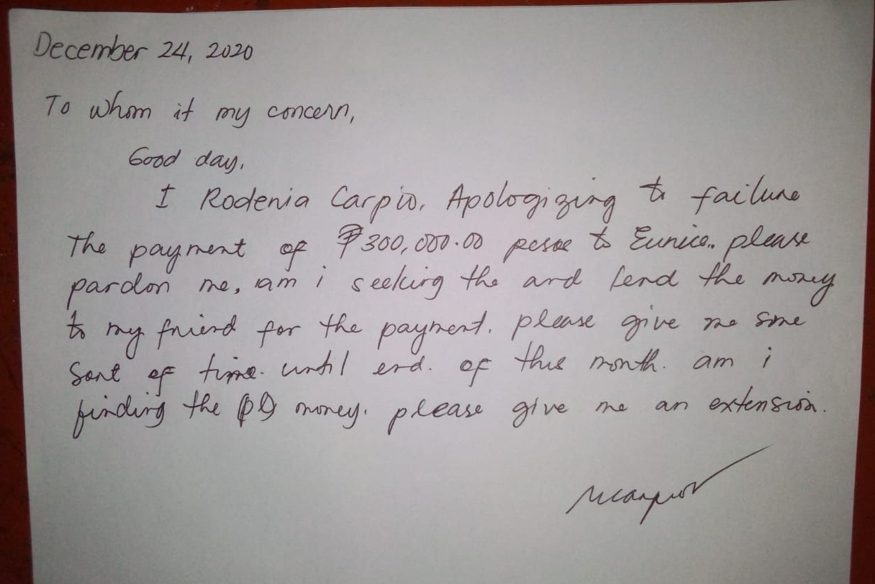 December 24, 2020
To whom it my concern,
Good day,
I Rodenia Carpio. Apologizing to failure
the payment of ₱300,000.00 pesoe to Eunice. please
pardon me, am i seeking the and lend the money
to my friend for the payment. please give me some
sort of time. until end. of this month. am i
finding the money. please give me an extension.